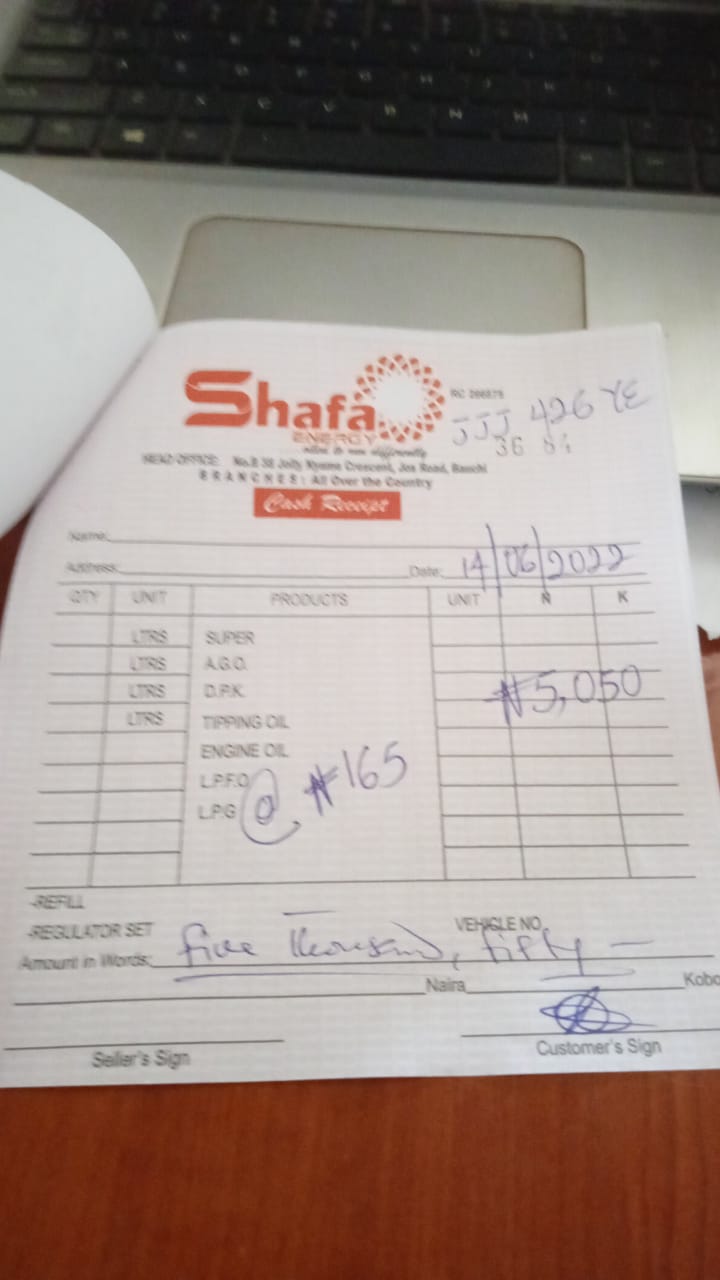 Shafa
ENERGY
RC 266879
JJJ 426 YE
HEAD OFFICE: No.B 38 Jolly Nyame Crescent, Jos Road, Bauchi
BRANCHES: All Over the Country
Cash Receipt
Name:
Address: Date: 14/06/2022
QTY UNIT PRODUCTS UNIT ₦ K
LTRS SUPER
LTRS A.G.O.
LTRS D.P.K. ₦5,050
LTRS TIPPING OIL
ENGINE OIL
L.P.F.O
L.P.G @ ₦165
-REFILL
-REGULATOR SET VEHICLE NO
Amount in Words: five thousand, fifty —
Naira Kobo
Seller's Sign Customer's Sign